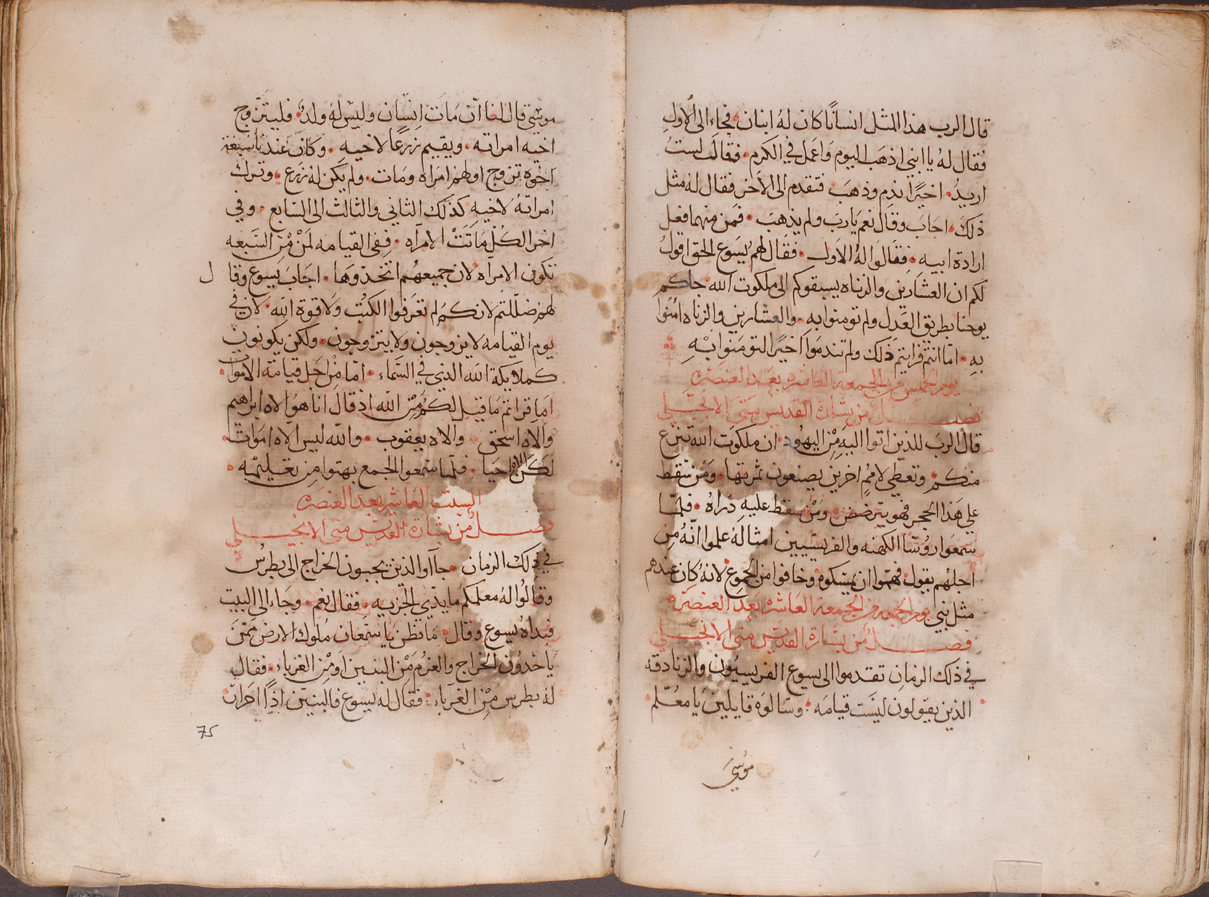 قال الرب هذا المثل انسانًا كان له ابنان فجاء الى الاول
فقال له يا ابني اذهب اليوم واعمل في الكرم فقال لست
اريد اخيرًا ندم وذهب فتقدم الى الآخر فقال له مثل
ذلك اجاب وقال نعم يا رب ولم يذهب فمن منهما فعل
ارادة ابيه فقالوا له الاول فقال لهم يسوع الحق اقول
لكم ان العشارين والزناه يسبقوكم الى ملكوت الله جاكم
يوحنا بطريق العدل ولم تومنوا به والعشارين والزناه امنوا
به اما انتم فرايتم ذلك ولم تندموا اخيرًا لتومنوا به
يوم الخميس من الجمعه العاشره بعد العنصره
فصل من بشارة القديس متى الانجيلي
قال الرب للذين اتوا اليه من اليهود ان ملكوت الله تنزع
منكم وتعطى لامم اخرين يصنعون ثمرتها ومن سقط
على هذا الحجر فهو يترضض ومن سقط عليه دراه فلما
سمعوا روسا الكهنه والفريسيين امثاله علموا انه من
اجلهم يقول فهموا ان يمسكوه وخافوا من الجموع لانه كان عندهم
مثل نبي يوم الجمعه من الجمعه العاشره بعد العنصره
فصل من بشارة القديس متى الانجيلي
في ذلك الزمان تقدموا الى يسوع الفريسيون والزنادقه
الذين يقولون ليست قيامه وسالوه قايلين يا معلم
موسى
موسى قال لنا ان مات انسان وليس له ولد فليتزوج
اخيه امراته ويقيم زرعا لاخيه وكان عندنا سبعة
اخوه تزوج اولهم امراه ومات ولم يكن له زرع وترك
امراته لاخيه كذلك الثاني والثالث الى السابع وفي
اخر الكل ماتت الامراه ففي القيامه لمن من السبعه
تكون الامراه لان جميعهم اتخذوها اجاب يسوع وقال
لهم ضللتم لانكم لم تعرفوا الكتب ولا قوة الله لان في
يوم القيامه لا يزوجون ولا يتزوجون ولكن يكونون
كملايكة الله الذي في السماء اما من اجل قيامة الاموات
اما قراتم ما قيل لكم من الله اذ قال انا هو الاه ابراهيم
والاه اسحق والاه يعقوب والله ليس الاه اموات
لكن احيا فلما سمعوا الجمع بهتوا من تعليمه
السبت العاشر بعد العنصره
فصل من بشارة القديس متى الانجيلي
في ذلك الزمان جاآوا الذين يجبون الخراج الى بطرس
وقالوا له معلمكم ما يذي الجزيه فقال نعم وجاء الى البيت
فبداه يسوع وقال ما تظن يا سمعان ملوك الارض ممن
ياخذون الخراج والغرم من البنين او من الغرباء فقال
له بطرس من الغرباء فقال له يسوع فالبنين اذًا احرار
75